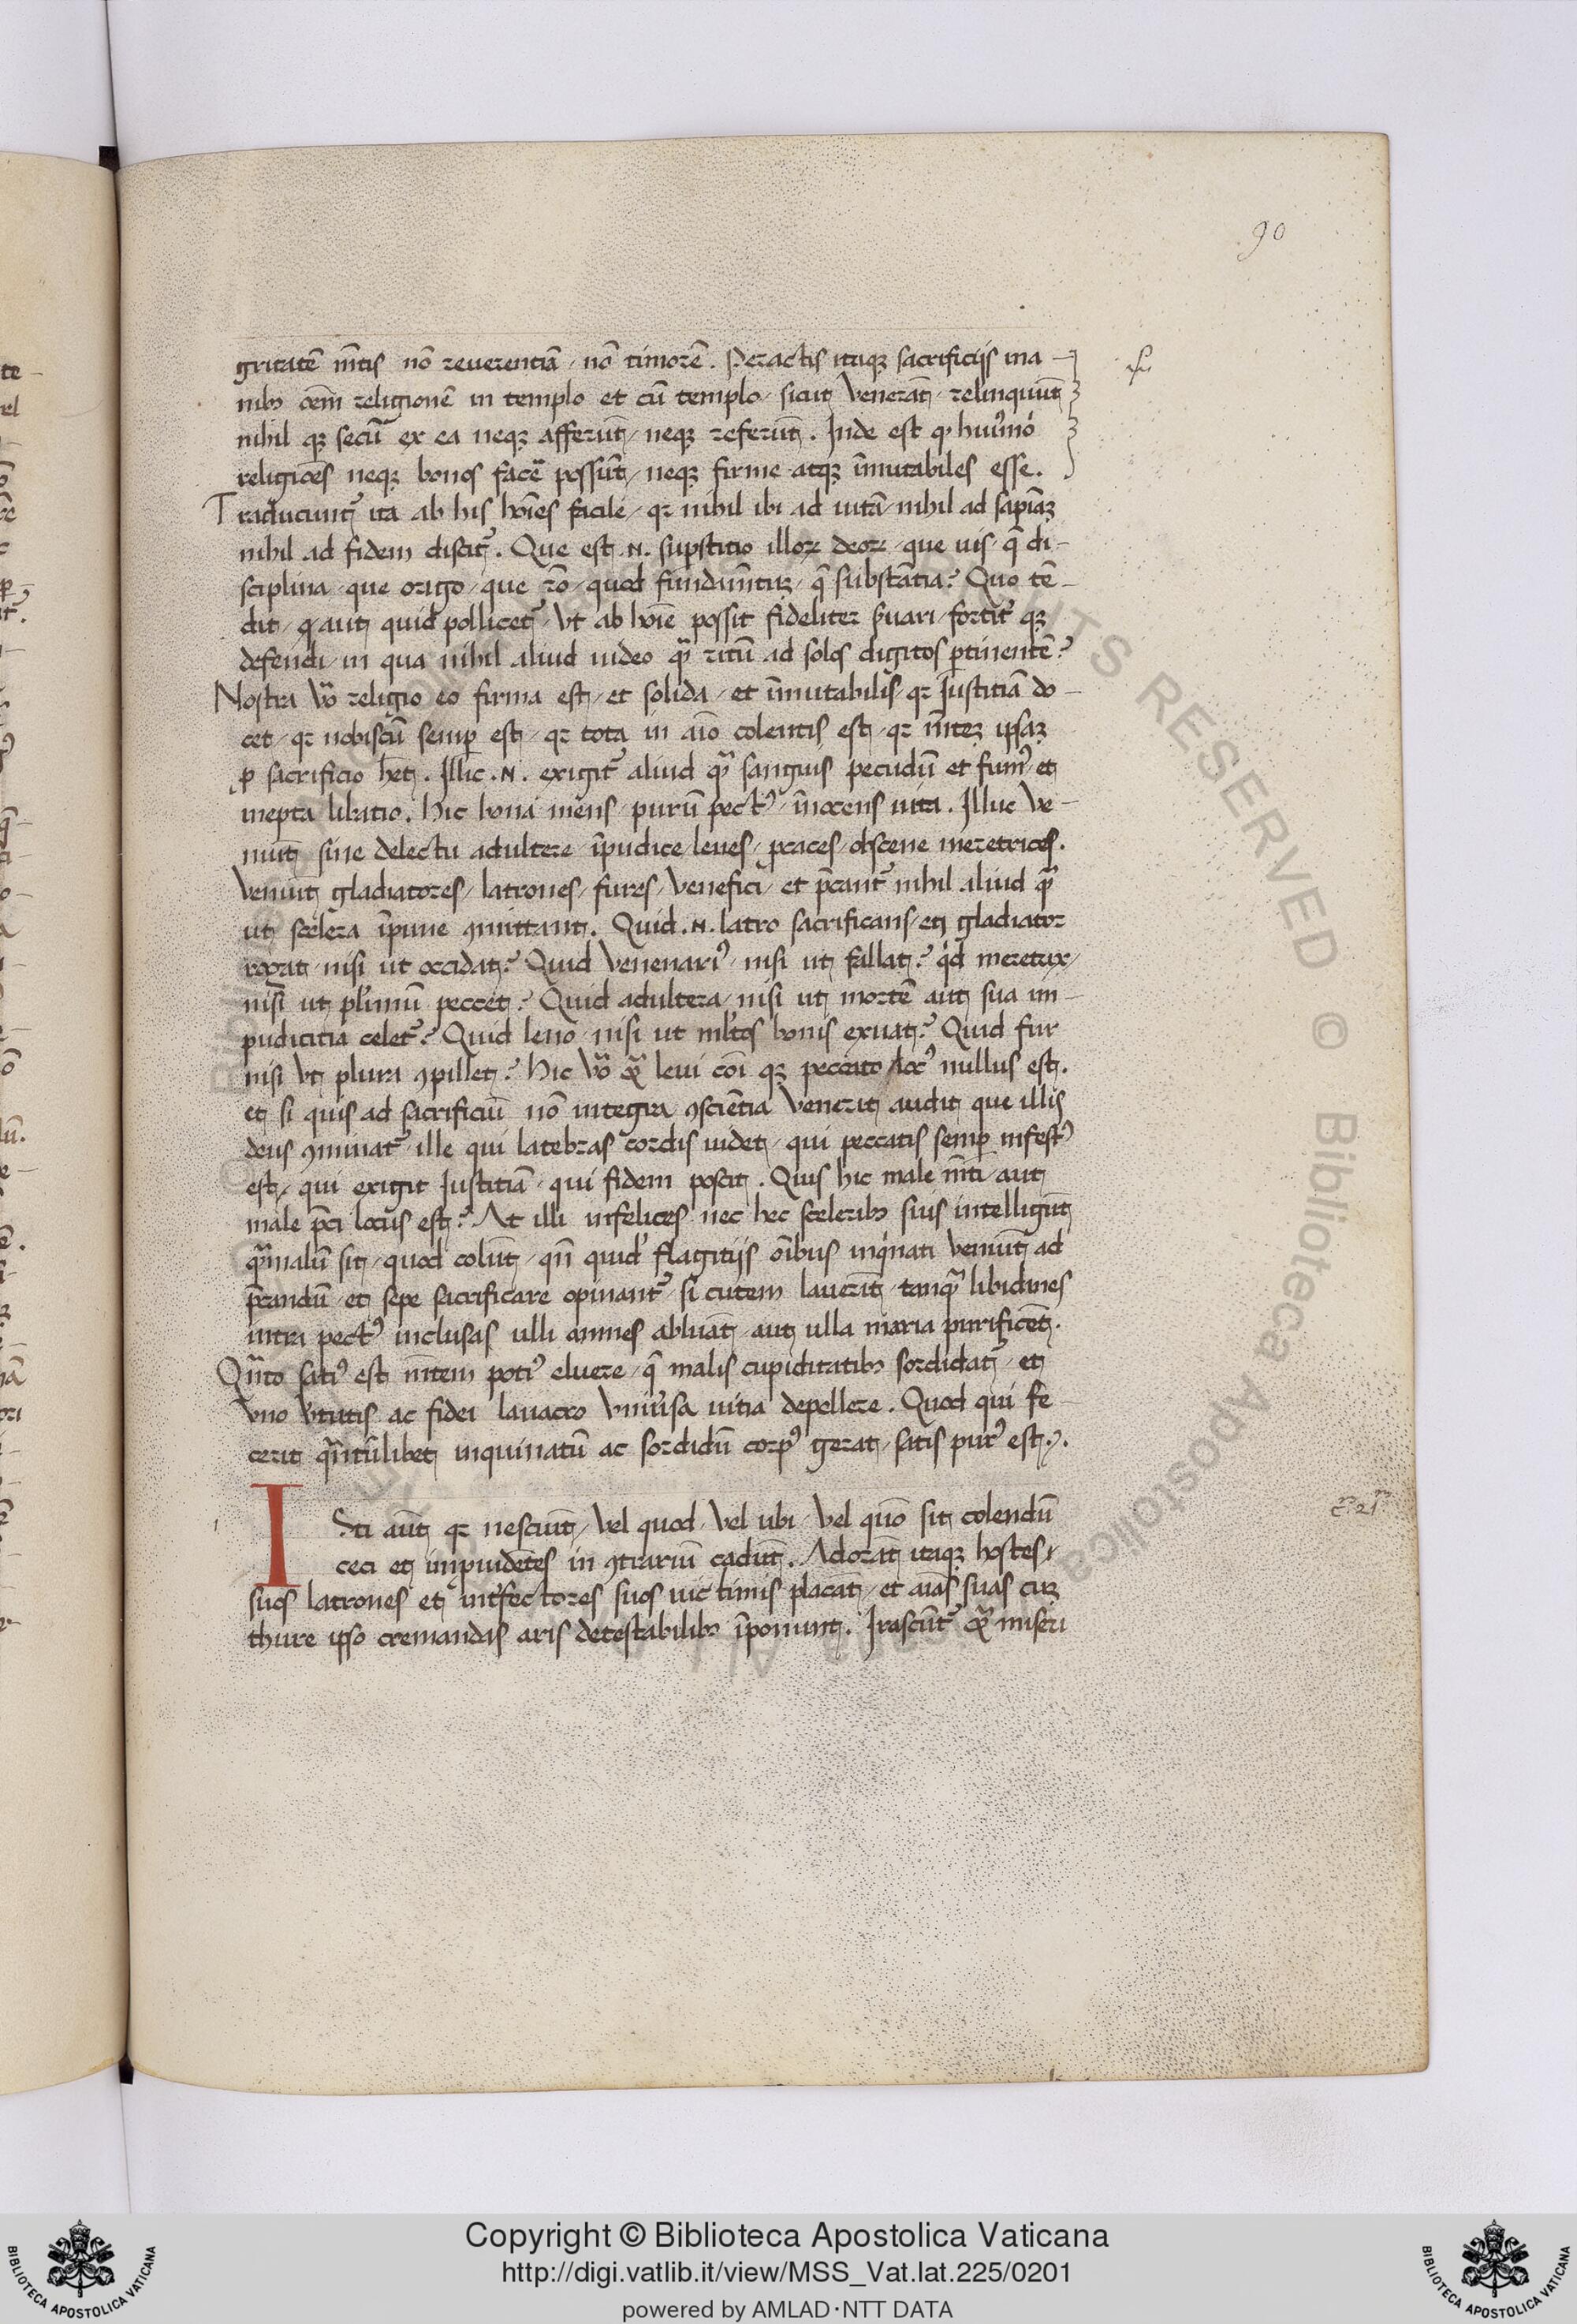 90
gritatē mētis nō reuerentiā / nō timorē. Peractis itaqꝫ sacrificijs ina -
nibꝫ oēm religionē in templo et cū templo / sicut Venerāt / relinquūt
nihil qꝫ secū ex ea neqꝫ afferūt / neqꝫ referūt. Inde est ꝙ huiꝰmōi
religiōes neqꝫ bonos facẽ possūt / neqꝫ firme atqꝫ īmutabiles esse.
Traducunt᷑ ita ab his hoīes facile / qꝛ nihil ibi ad uitā / nihil ad sapiaꝫ
nihil ad fidem discit᷑. Que est .N. supstitio illoꝝ deoꝝ / que uis / q̄ di -
sciplina / que origo / que rō / quod fundamentū / q̄ substātia? Quo tē -
dit / aut quid pollicet᷑ / Vt ab hoīe possit fideliter ẜuari / fortit᷑ qꝫ
defendi / in qua nihil aliud uideo qᷓ ritū ad solos digitos ꝑtinentē?
Nostra ṽo religio eo firma est / et solida / et īmutabilis / qꝛ Iustitiā do -
cet / qꝛ nobiscū semꝑ est / qꝛ tota in aīo colentis est / qꝛ mēteꝫ ipsaꝫ
ꝓ sacrificio hēt. Illic .N. exigit᷑ aliud qᷓ sanguis pecudū et fumꝰ / et
inepta libatio. Hic bona mens / purū pectꝰ / īnocens uita. Illuc Ve -
niūt sine delectu adultere / īpudice leues / ꝓcaces / obscene meretrices.
Veniūt gladiatores / latrones / fures / Venefici / et p̄cant᷑ nihil aliud qᷓ
ut scelera īpune ꝯmittant. Quid .N. latro sacrificans / et gladiator
rogat / nisi ut occidat? Quid Venenariꝰ / nisi ut fallat? qͥd meretrix /
nisi ut plīmū peccet? Quid adultera / nisi ut mortē aut sua im -
pudicitia celet᷑? Quid leno / nisi ut ml̄tos bonis exuat? Quid fur
nisi Vt plura ꝯpillet? Hic ṽo qᷓ leui cōi qꝫ peccato locꝰ nullus est.
et si quis ad sacrificiū nō integra ꝯsciētia Venerit audit que illis
deus ꝯminat᷑ / ille qui latebras cordis uidet / qui peccatis semꝑ infestꝰ
est / qui exigit Iustitiā / qui fidem poscit. Quis hic male mēti / aut
male p̄ci locus est? At illi infelices nec hec sceleribꝫ suis intelligūt
qᷓ malū sit / quod colūt / qn̄ quidẽ flagitijs oībus inqͥnati Veniūt ad
p̄candū / et sepe sacrificare opinant᷑ / si cutem lauerīt / tanqᷓ libidines
intra pectꝰ inclusas ulli amnes abluāt / aut ulla maria purificēt.
Qᷓnto satiꝰ est mētem potiꝰ eluere / q̄ malis cupiditatibꝫ sordidat᷑ / et
Vno Ṽtutis ac fidei lauacro Vniũsa uitia depellere. Quod qui fe
cerit qᷓntūlibet inquinatū ac sordidū corpꝰ gerat / satis purꝰ est.
c.m 21m
Isti aūt qꝛ nesciūt / Vel quod / Vel ubi / Vel quō sit colendū
ceci et impuidētes in ꝯtrariū cadūt. Adorāt itaqꝫ hostes /
suos latrones et intẽfectores suos uictimis placāt / et aīas suas cuꝫ
thure ipso cremandas aris detestabilibꝫ īponunt. Irascūt᷑ qᷓ miseri
Copyright © Biblioteca Apostolica Vaticana
http://digi.vatlib.it/view/MSS_Vat.lat.225/0201
powered by AMLAD·NTT DATA
BIBLIOTECA APOSTOLICA VATICANA
BIBLIOTECA APOSTOLICA VATICANA